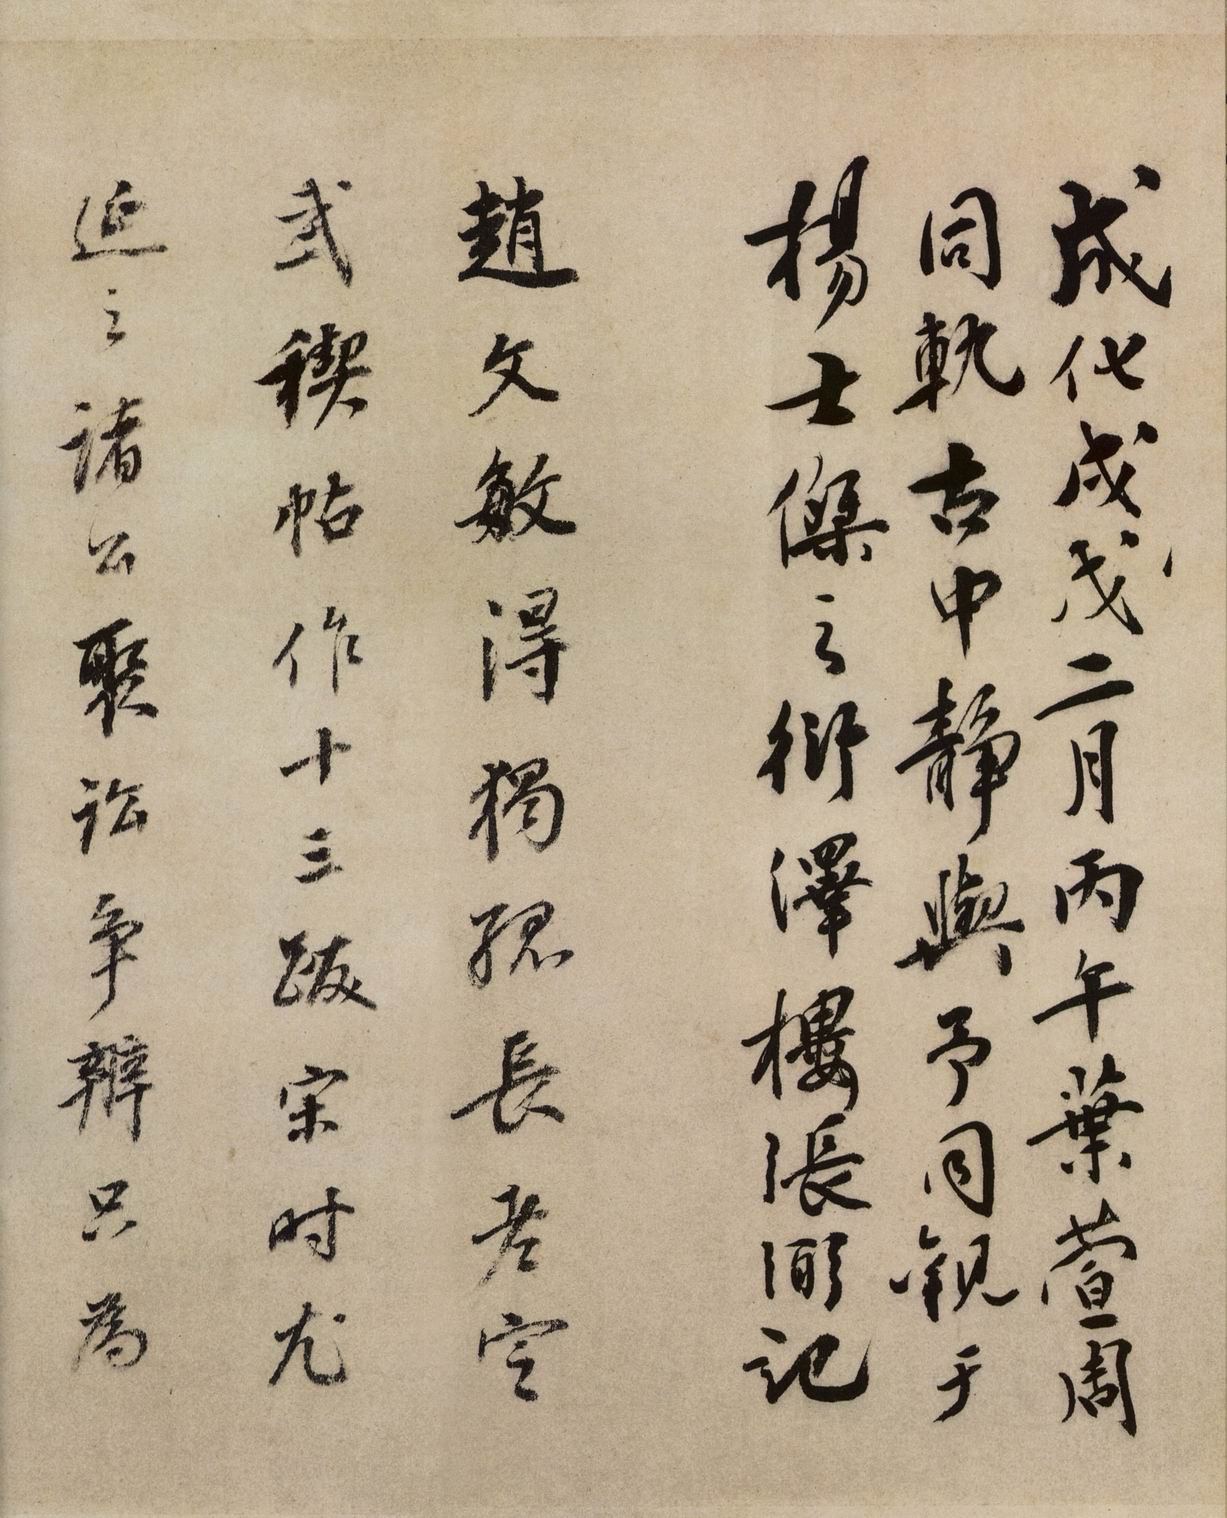 成化戌戊二月丙午葉萱周
同軌古中靜與予同觀于
楊士傑之衍澤樓張弼記
趙文敏得獨孤長老定
武禊帖作十三跋宋时尤
延之諸公聚訟争辨只為